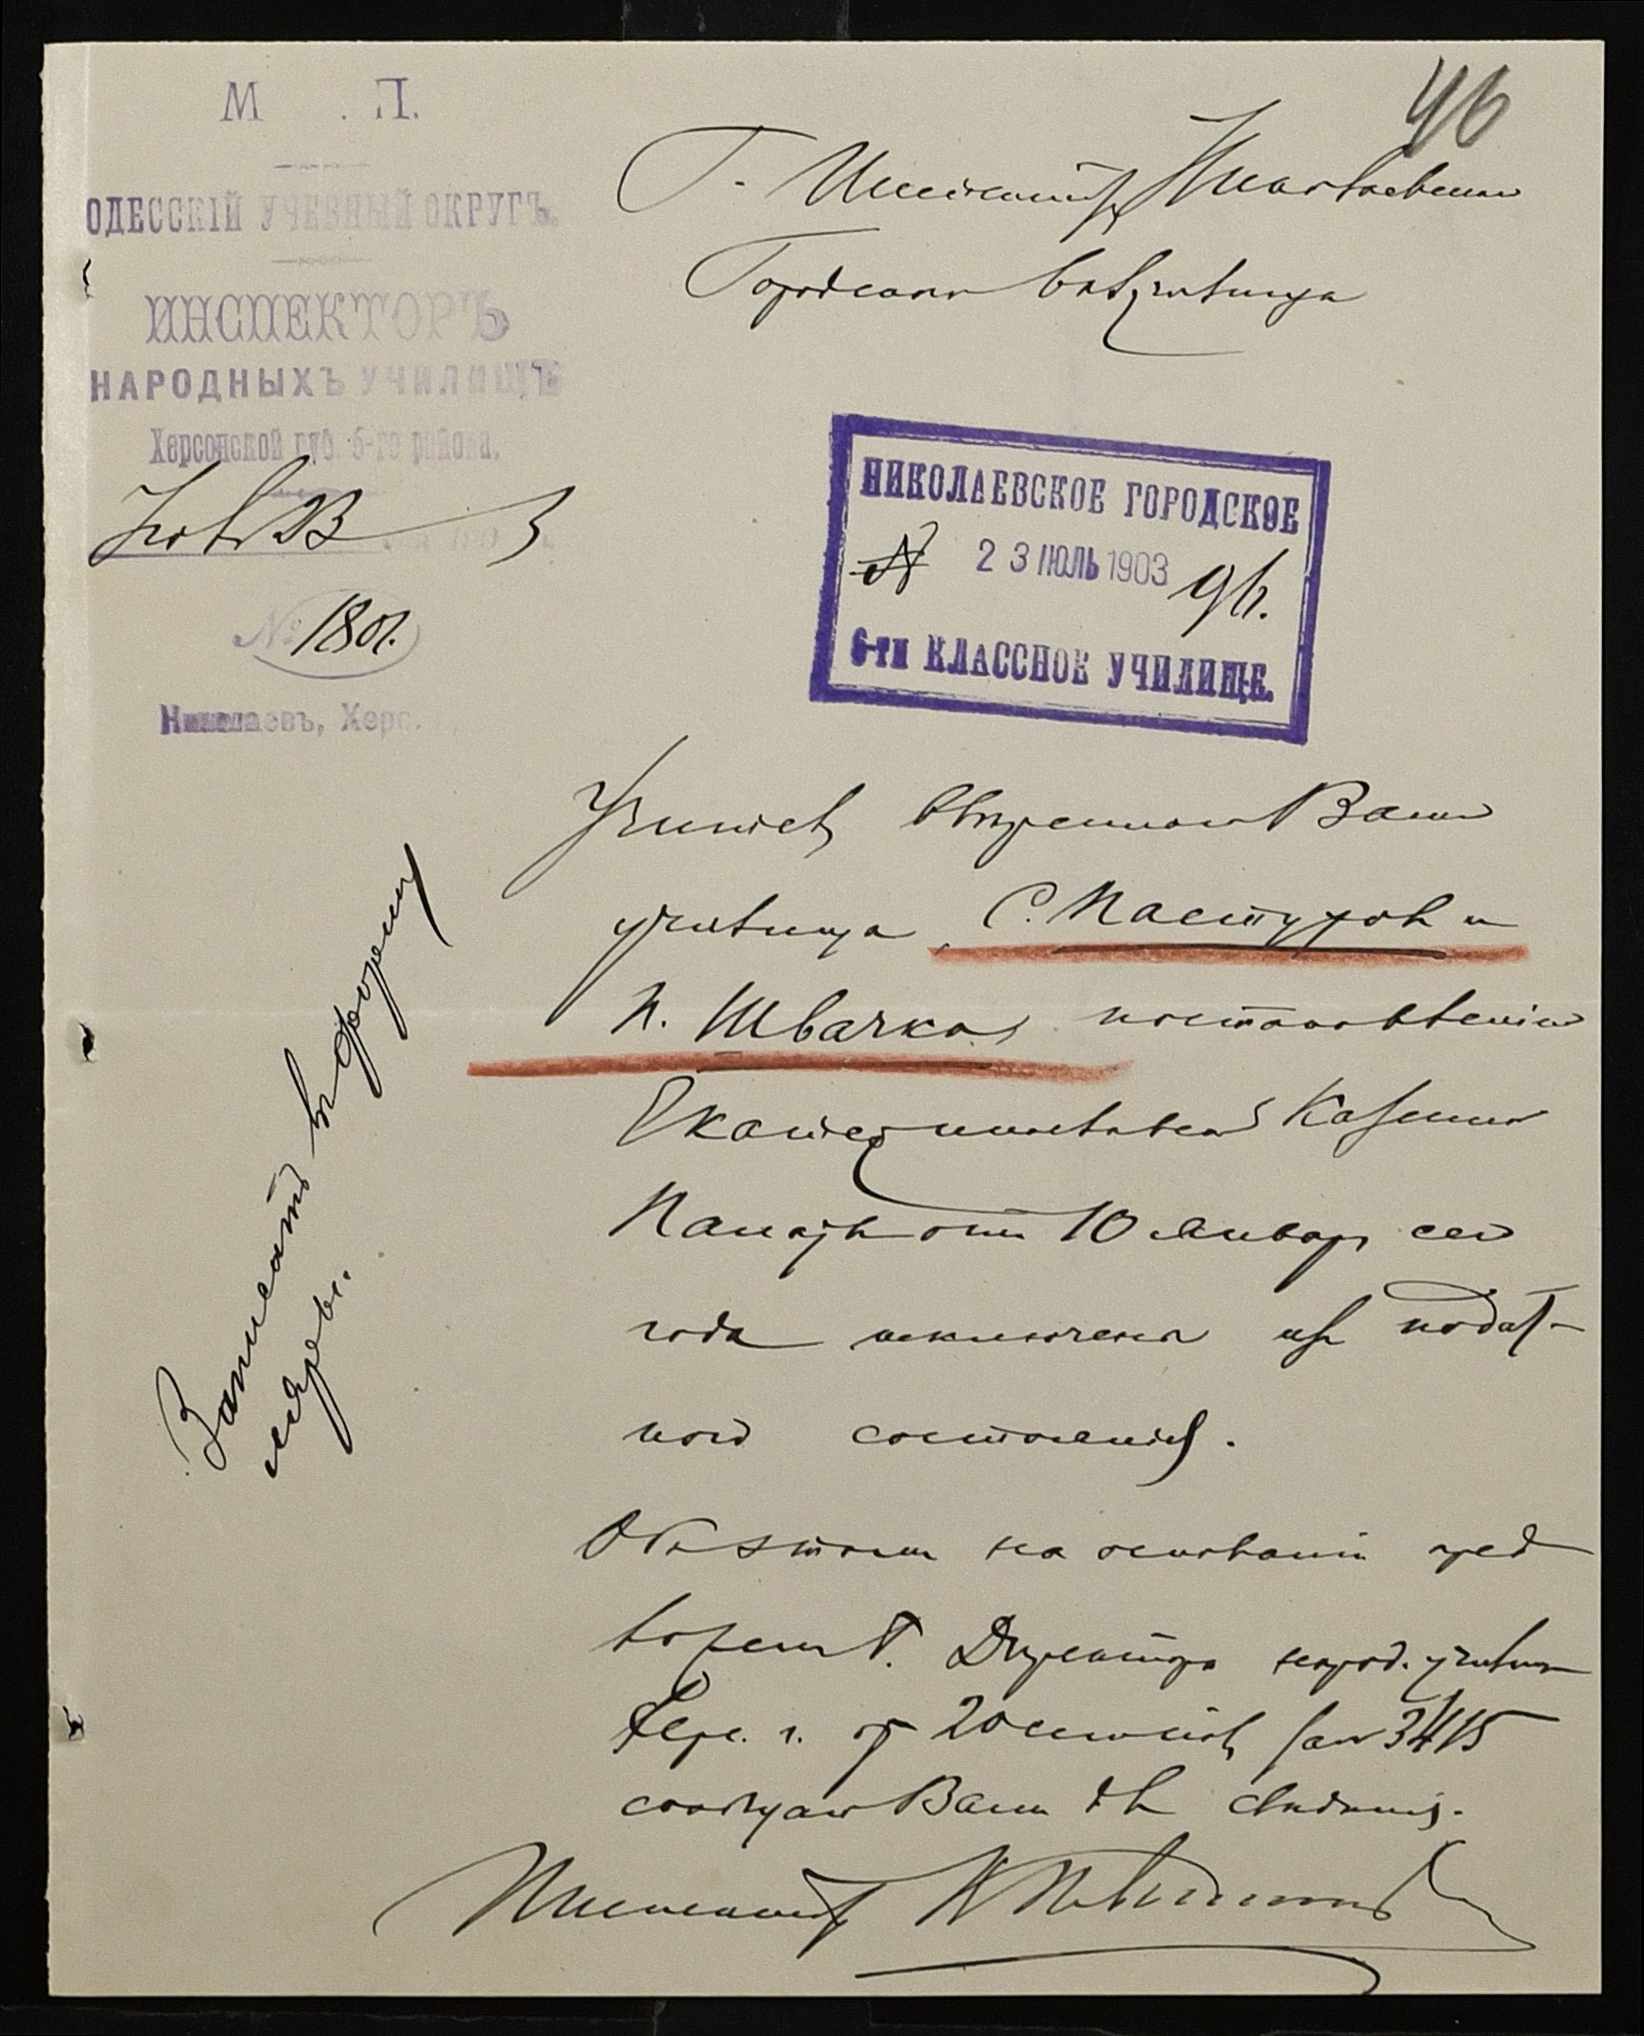 46
М . П.
ОДЕССКІЙ УЧЕБНЫЙ ОКРУГЪ.
ИНСПЕКТОРЪ
НАРОДНЫХЪ УЧИЛИЩЪ
Херсонской губ. 6-го района.
№ 1801.
Николаевъ, Херс.
Г. Инспектору Николаевскаго
Городского училища
НИКОЛАЕВСКОЕ ГОРОДСКОЕ
№ 23 ІЮЛЬ 1903 96.
6-ти КЛАССНОЕ УЧИЛИЩЕ.
Учитель ввѣреннаго Вамъ
училища С. Пастуховъ и
П. Швачка постановленіемъ
Екатеринославской Казенной
Палаты отъ 10 января сего
года исключены изъ податного состоянія.
Объ этомъ на основаніи предложенія Г. Директора народ. училищъ
Херс. г. отъ 20 за № 3415
сообщаю Вамъ для свѣдѣнія.
Инспекторъ
Записать въ формуляры.